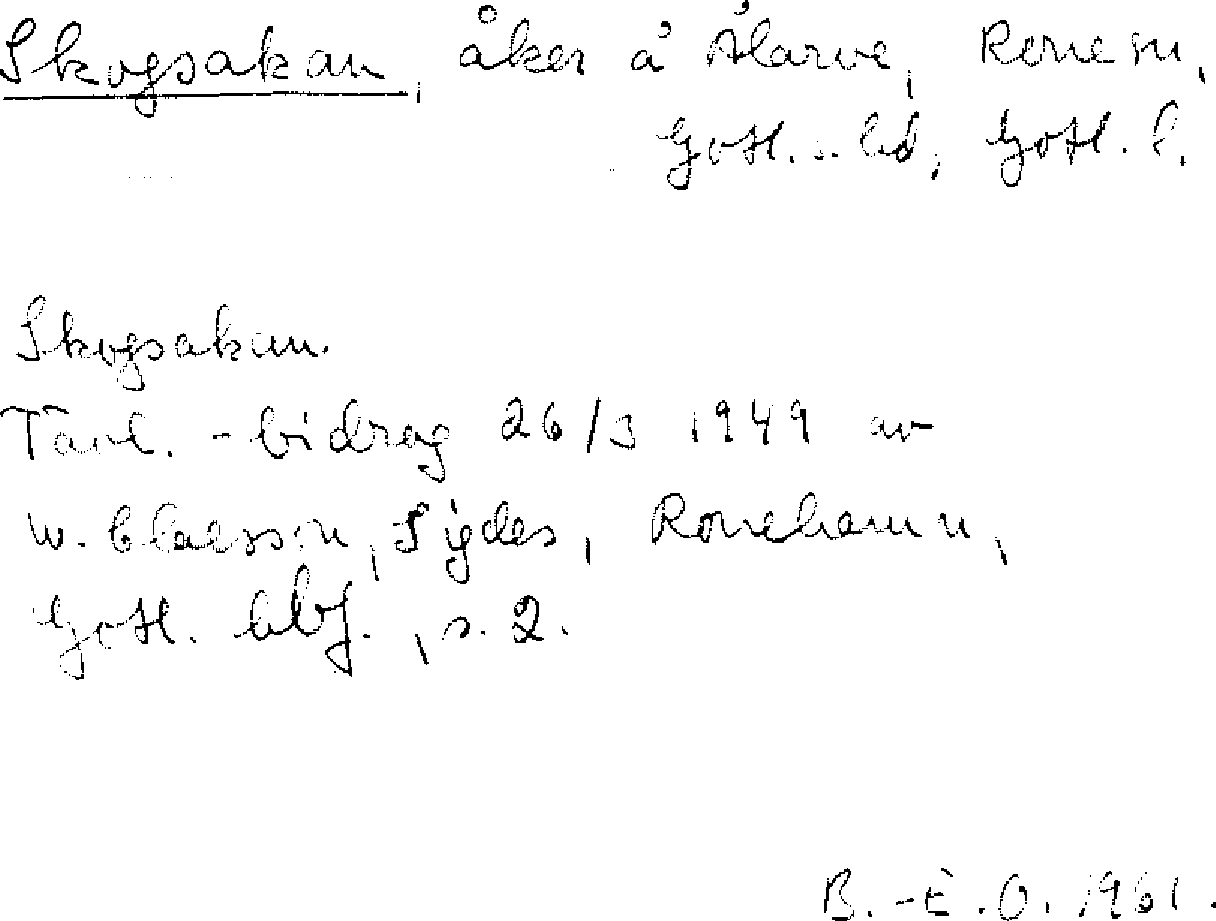 Skogsakan, åker å Ålarve, Rone sn,
Gotl. s. hd, Gotl. l.
Skogsakan.
Tävl.-bidrag 26/3 1949 av
W. Claesson, Sigdes, Ronehamn,
Gotl. , s. 2.
B.-E.O. 1961.